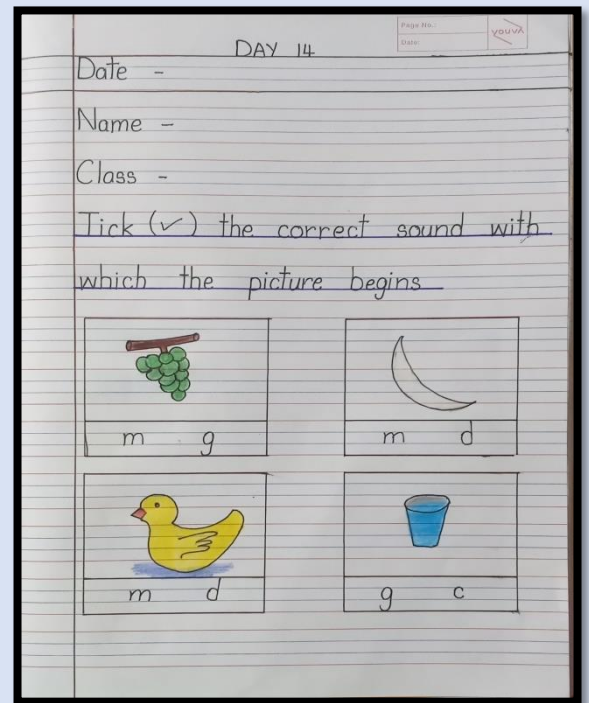 Page No.:
Date:
YOUVA
DAY 14
Date -
Name -
Class -
Tick (✓) the correct sound with
which the picture begins
m g
m d
m d
g c